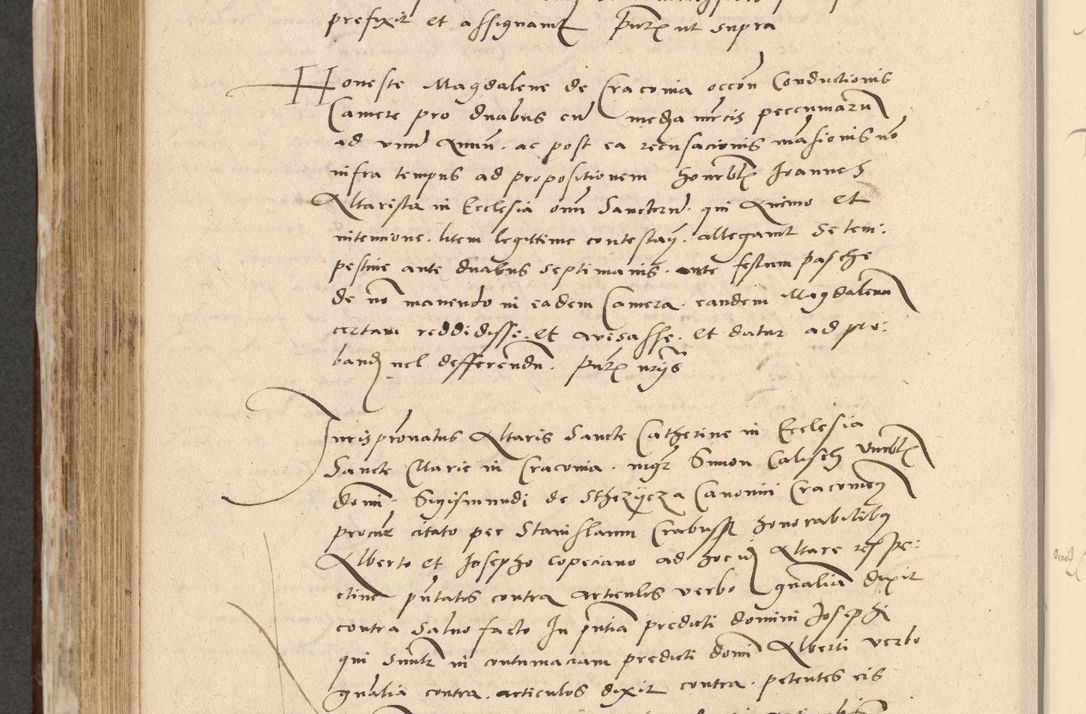 prefixit et assignavit pntbz ut supra
Honeste Magdalene de Cracovia occon Conductionis
Camere pro duabus cu media mrcis peccuniaru
ad unu Annu. ac post ea recusacionis mansionis no
infra tempus ad propositionem honorblis Joannes
Altarista in Ecclesia oim Sanctoru. qui Animo et
intencione. litem legittime contestan. allegavit se tem-
pestive ante duabus septimanis. ante festum pasche
de no manendo in eadem Camera. eandem Magdalenam
certam reddidisse. et avisasse. et datur ad pro-
band vel defferendu. pntbz
Jurispronatus Altaris Sancte Catherine in Ecclesia
Sancte Marie in Cracovia. mgr Simon Calisch venrblis
domi. Sigismundi de Sthezycza Canonici Cracovien
procur citato per Stanislaum honorabilibus
Alberto et Josepho copeciano ad Altare respe-
ctive pntatis contra articulos verbo gnalia dixit
contra Salvo facto In pntia predicti domini Josephi
qui in contumaciam predicti domi Alberti verbo
gnalia contra. articulos dixit contra. petentes eis